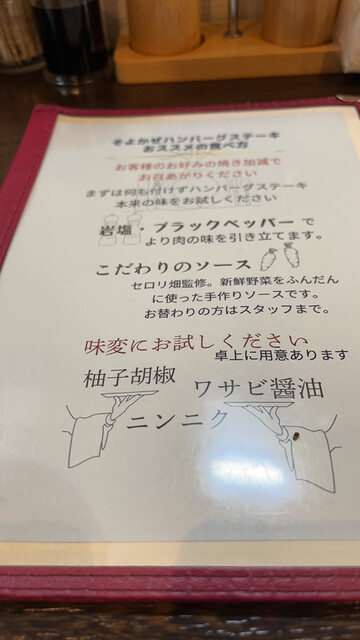 そよかぜハンバーグステーキ
おススメの食べ方
お客様のお好みの焼き加減で
お召あがりください
まずは何も付けずハンバーグステーキ
本来の味をお試しください
岩塩・ブラックペッパーで
より肉の味を引き立てます。
こだわりのソース
セロリ畑監修。新鮮野菜をふんだん
に使った手作りソースです。
お替わりの方はスタッフまで。
味変にお試しください
卓上に用意あります
柚子胡椒
ワサビ醤油
ニンニク